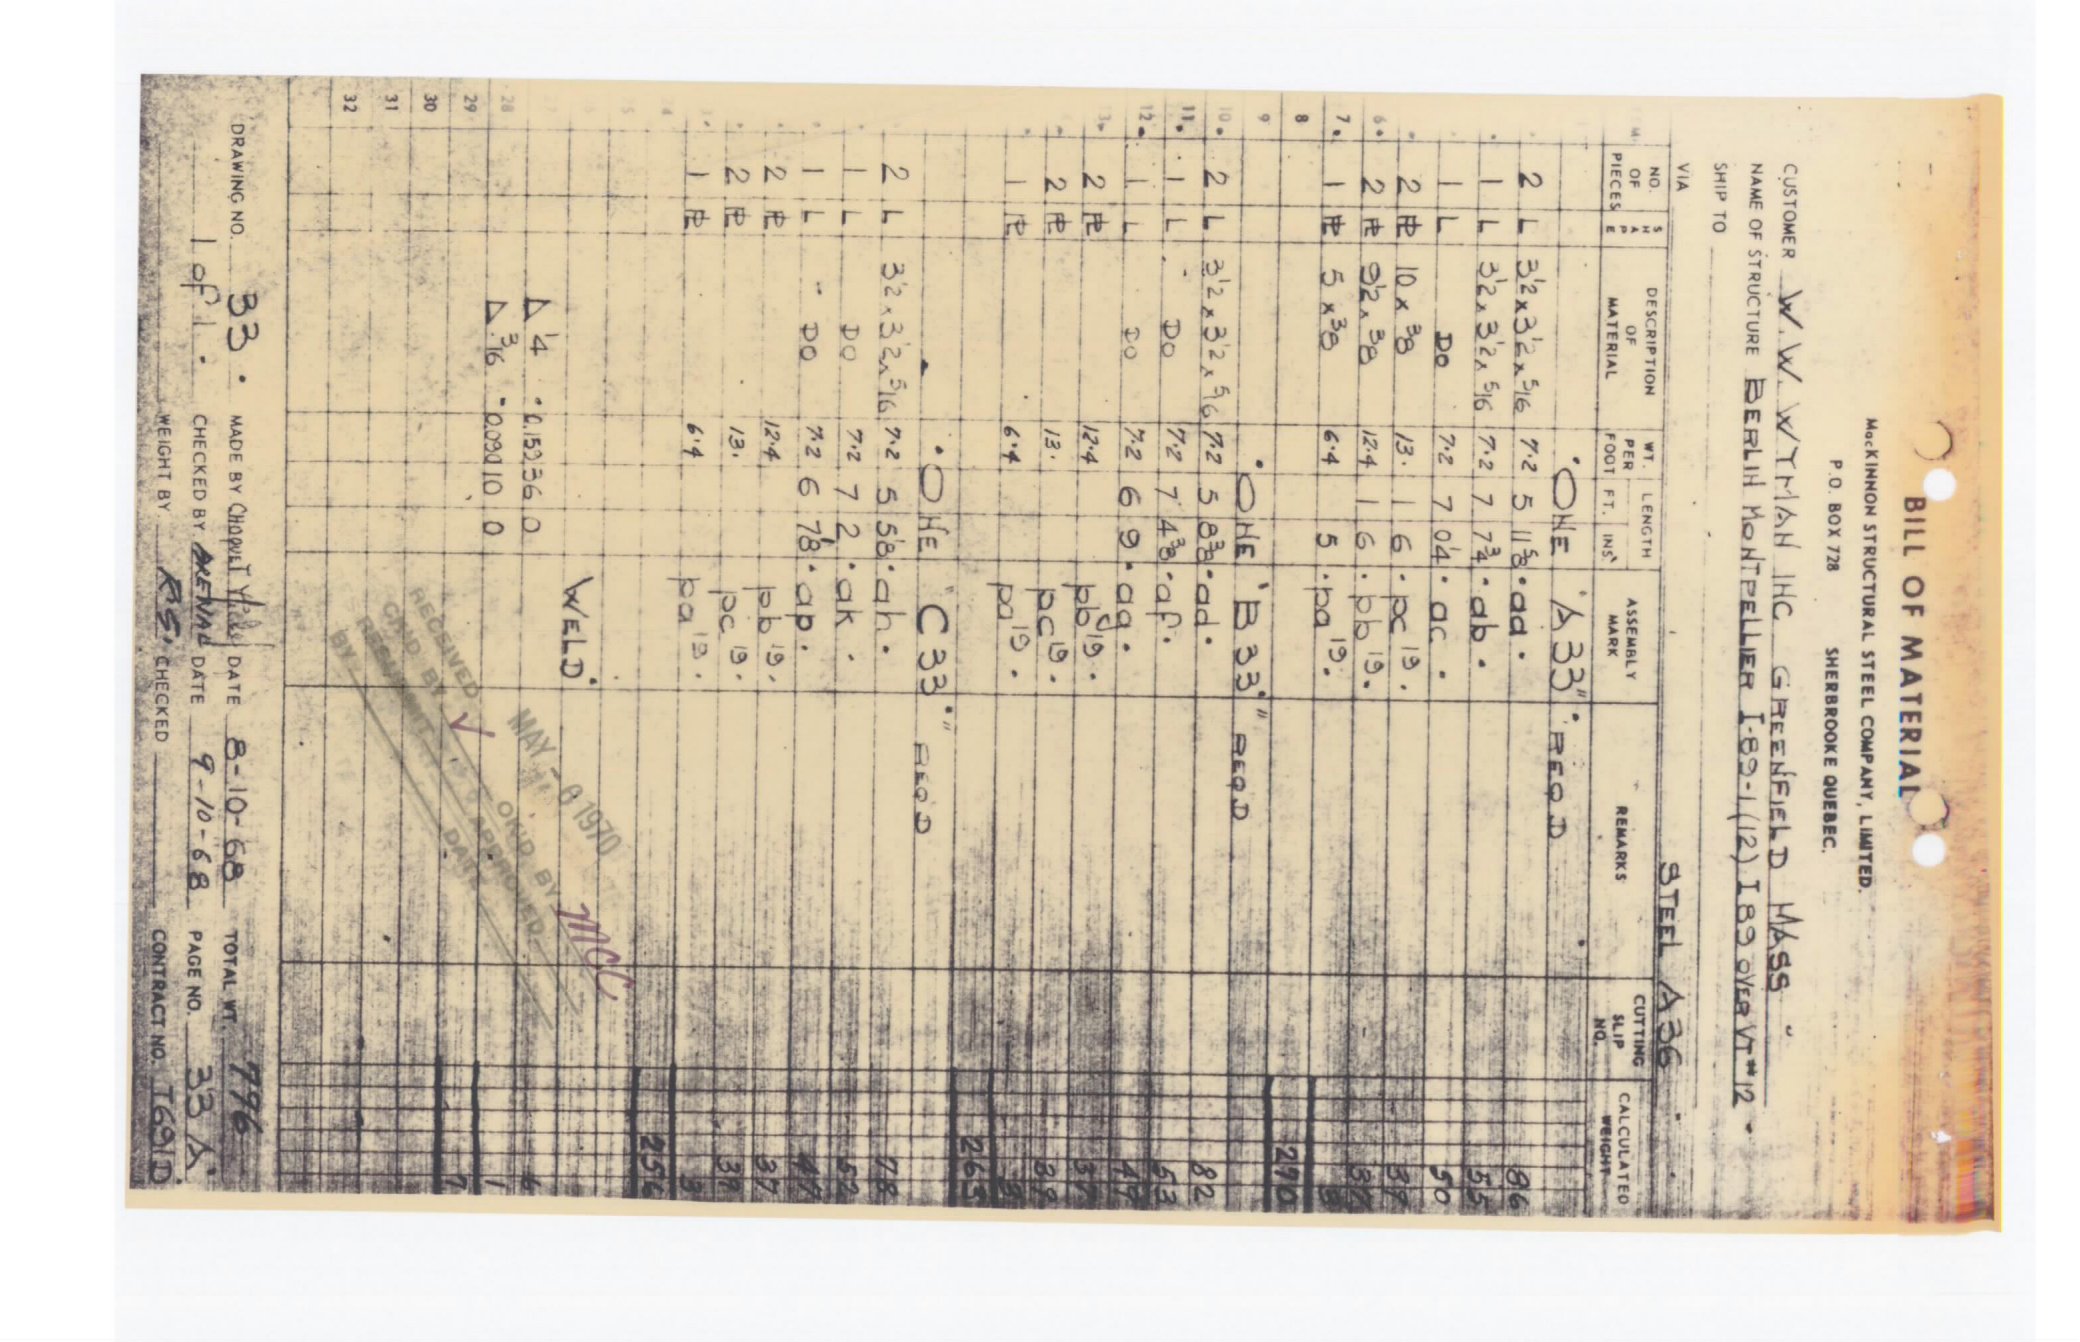 BILL OF MATERIAL
MacKINNON STRUCTURAL STEEL COMPANY, LIMITED.
P.O. BOX 728 SHERBROOKE QUEBEC.
CUSTOMER W. W. WYMAN INC GREENFIELD MASS
NAME OF STRUCTURE BERLIN MONTPELLIER I-89-1(12) I 89 OVER VT #12
SHIP TO
VIA STEEL A36
NO. OF PIECES SHAPE DESCRIPTION OF MATERIAL WT. PER FOOT LENGTH FT. INS. ASSEMBLY MARK REMARKS CUTTING SLIP NO. CALCULATED WEIGHT
ONE "A33" REQD
2 L 3½ x 3½ x 5/16 7.2 5 11⅝ aa 86
1 L 3½ x 3½ x 5/16 7.2 7 7¾ ab 55
1 L DO 7.2 7 0¼ ac 50
2 PL 10 x ⅜ 13. 1 6 pc 19 39
6 2 PL 9½ x ⅜ 12.4 1 6 pb 19 37
7 1 PL 5 x ⅜ 6.4 5 pa 19 3
8 270
9 ONE "B33" REQD
10 2 L 3½ x 3½ x 5/16 7.2 5 8⅜ ad 82
11 1 L DO 7.2 7 4⅜ af 53
12 1 L DO 7.2 6 9 ag 49
13 2 PL 12.4 pb 19 37
2 PL 13. pc 19 39
1 PL 6.4 pa 19 3
263
ONE "C33" REQD
2 L 3½ x 3½ x 5/16 7.2 5 5⅛ ah 78
1 L DO 7.2 7 2 ak 52
1 L DO 7.2 6 7⅛ ap 47
2 PL 12.4 pb 19 37
2 PL 13. pc 19 39
1 PL 6.4 pa 19 3
256
WELD
¼ 0.159 36 0 6
28 3/16 0.090 10 0 1
29 7
30
31
32
MAY - 6 1970
RECEIVED ORI'D BY MCC
CH'D. BY
APPROVED
BY DATE
DRAWING NO. 33 MADE BY DATE 8-10-68 TOTAL WT. 796
1 of 1 CHECKED BY ARENAL DATE 9-10-68 PAGE NO. 33 A
WEIGHT BY R.S. CHECKED CONTRACT NO. T691D